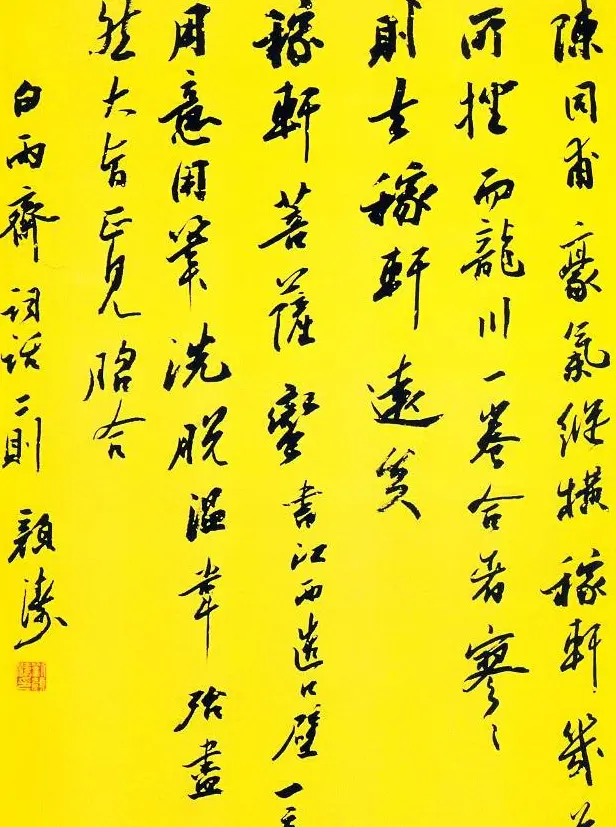 陳同甫豪氣縱橫稼軒幾為
所挫而龍川一卷合者寥寥
則去稼軒遠矣
稼軒菩薩蠻書江西造口壁一
用意用筆洗脫溫韋殆盡
然大旨正見脗合
白雨齋詞話二則 顏濤